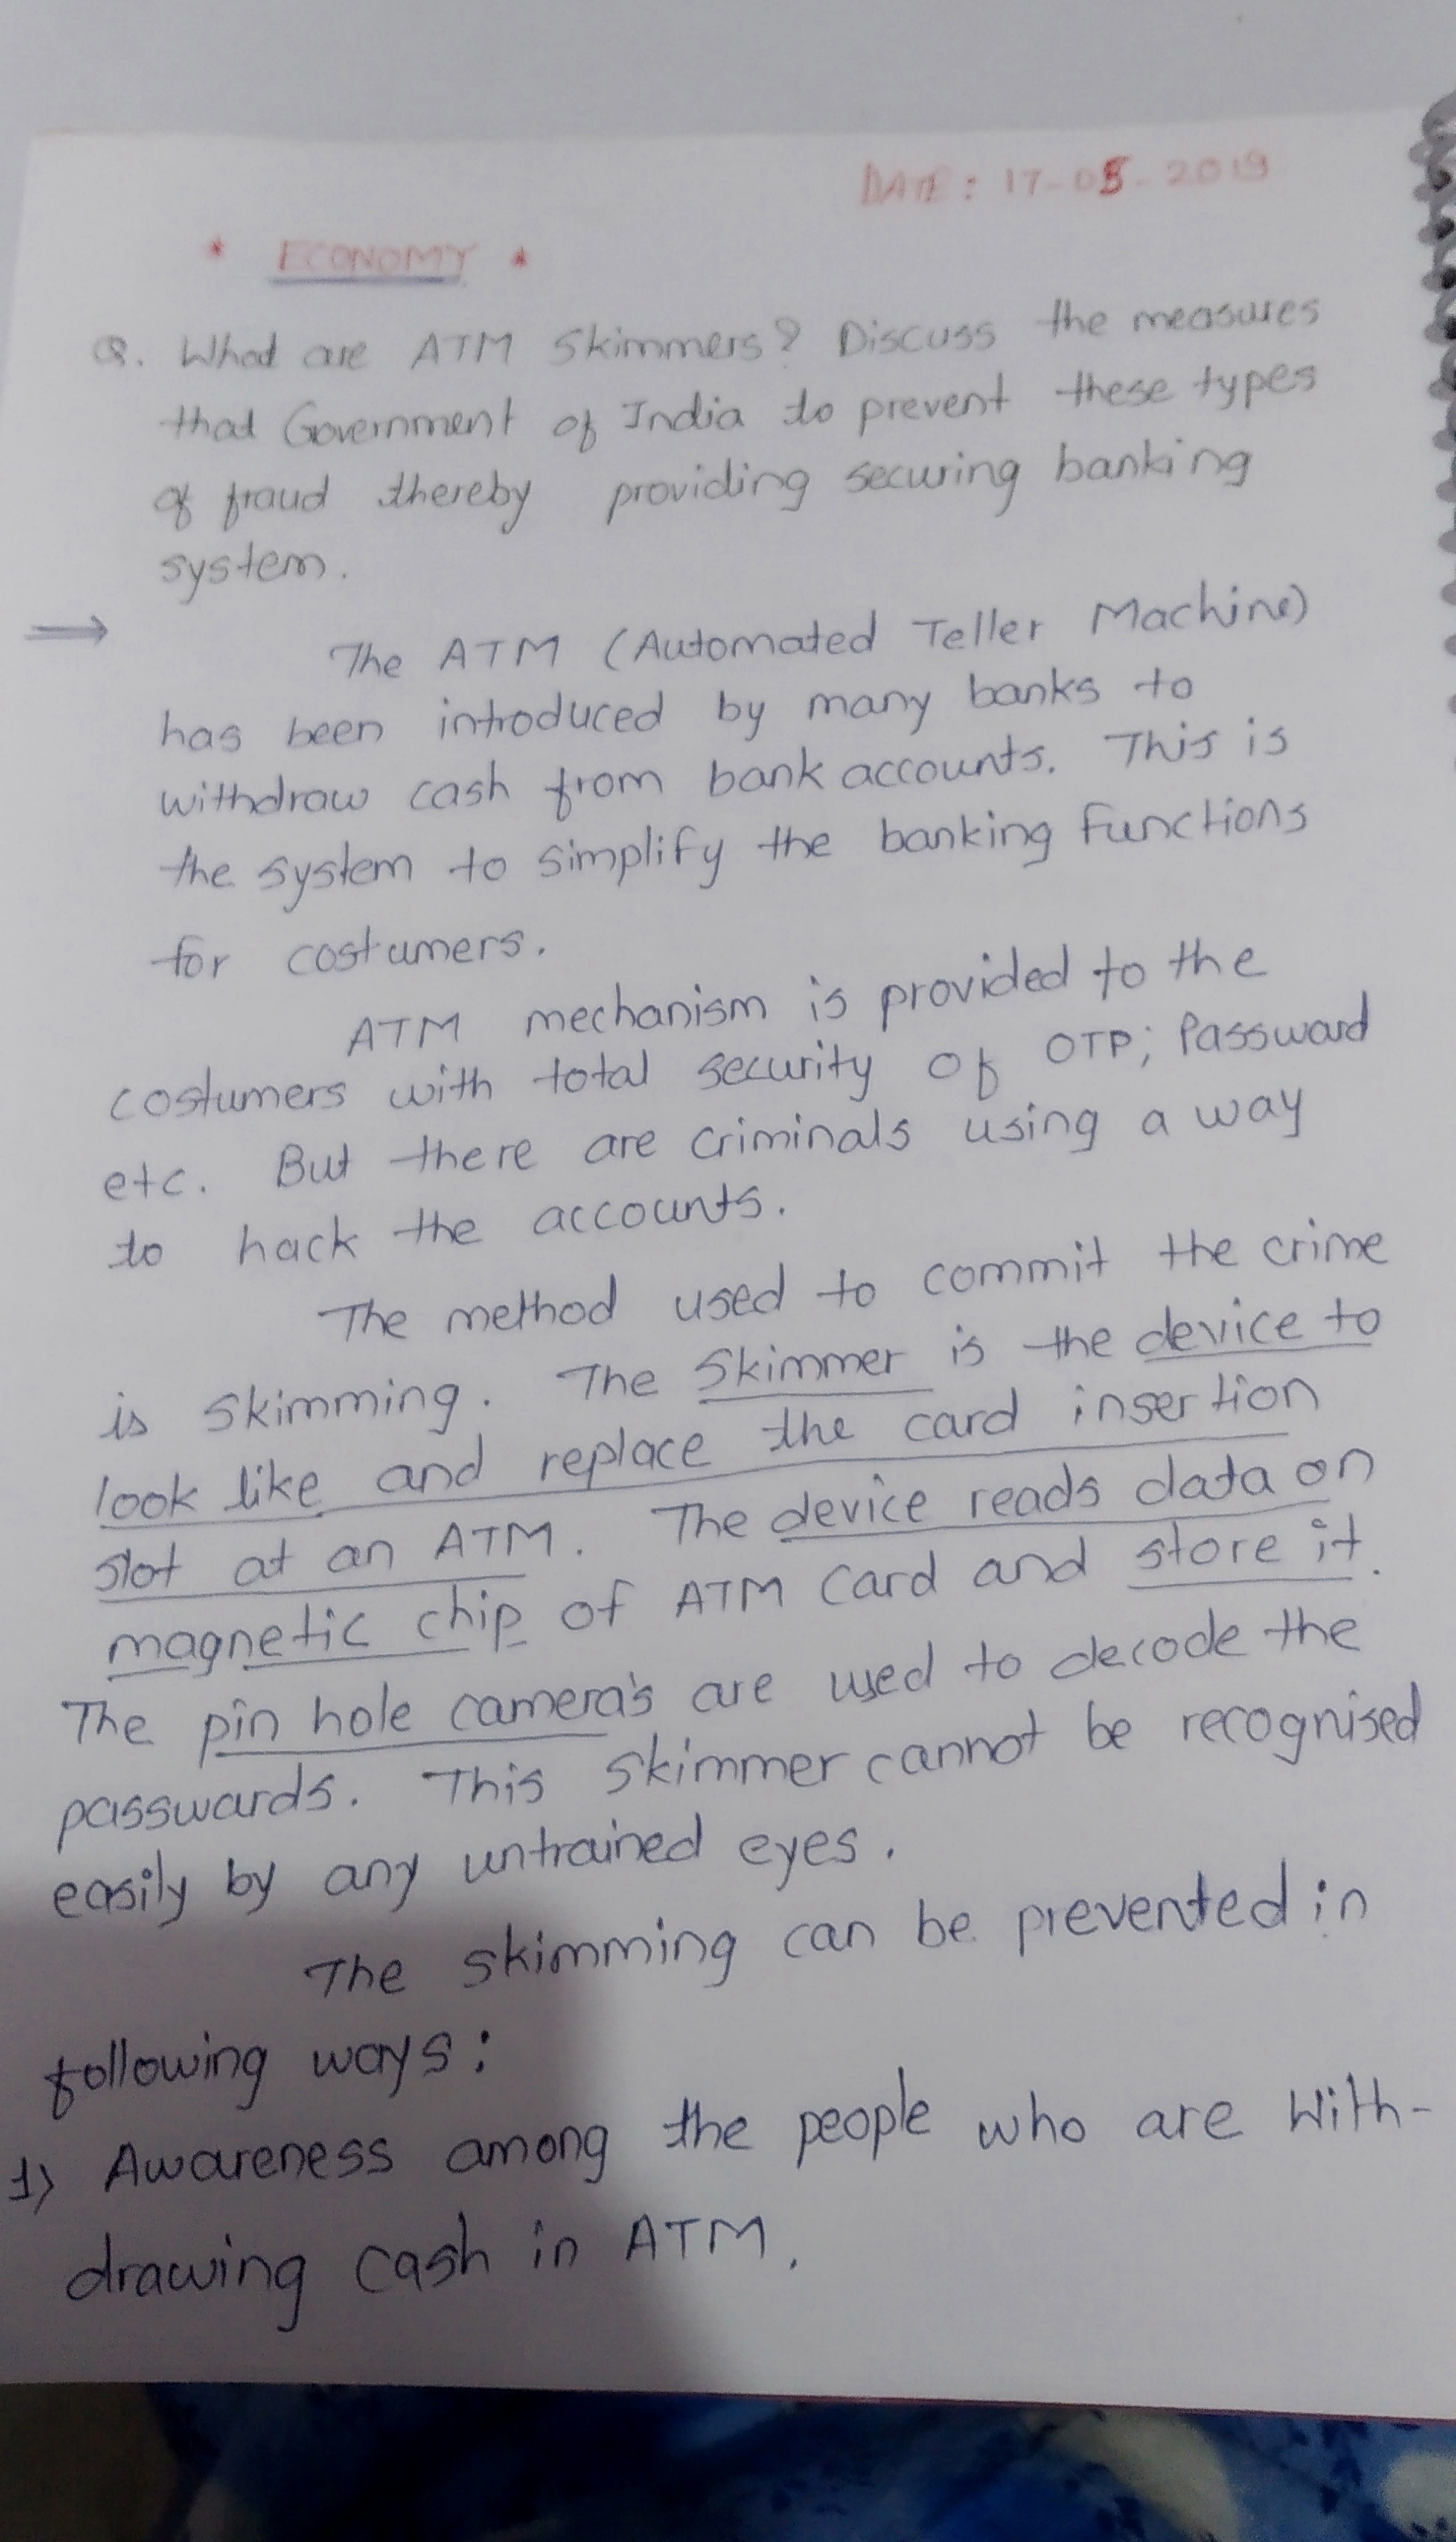 DATE: 17-05-2019
* ECONOMY *
Q. What are ATM Skimmers? Discuss the measures
that Government of India to prevent these types
of fraud thereby providing securing banking
system.
⟹
The ATM (Automated Teller Machine)
has been introduced by many banks to
withdraw cash from bank accounts. This is
the system to simplify the banking functions
for costumers.
ATM mechanism is provided to the
costumers with total security of OTP; Passward
etc. But there are criminals using a way
to hack the accounts.
The method used to commit the crime
is skimming. The Skimmer is the device to
look like and replace the card insertion
slot at an ATM. The device reads data on
magnetic chip of ATM Card and store it.
The pin hole camera's are used to decode the
passwards. This skimmer cannot be recognised
easily by any untrained eyes.
The skimming can be prevented in
following ways:
1) Awareness among the people who are With-
drawing cash in ATM.